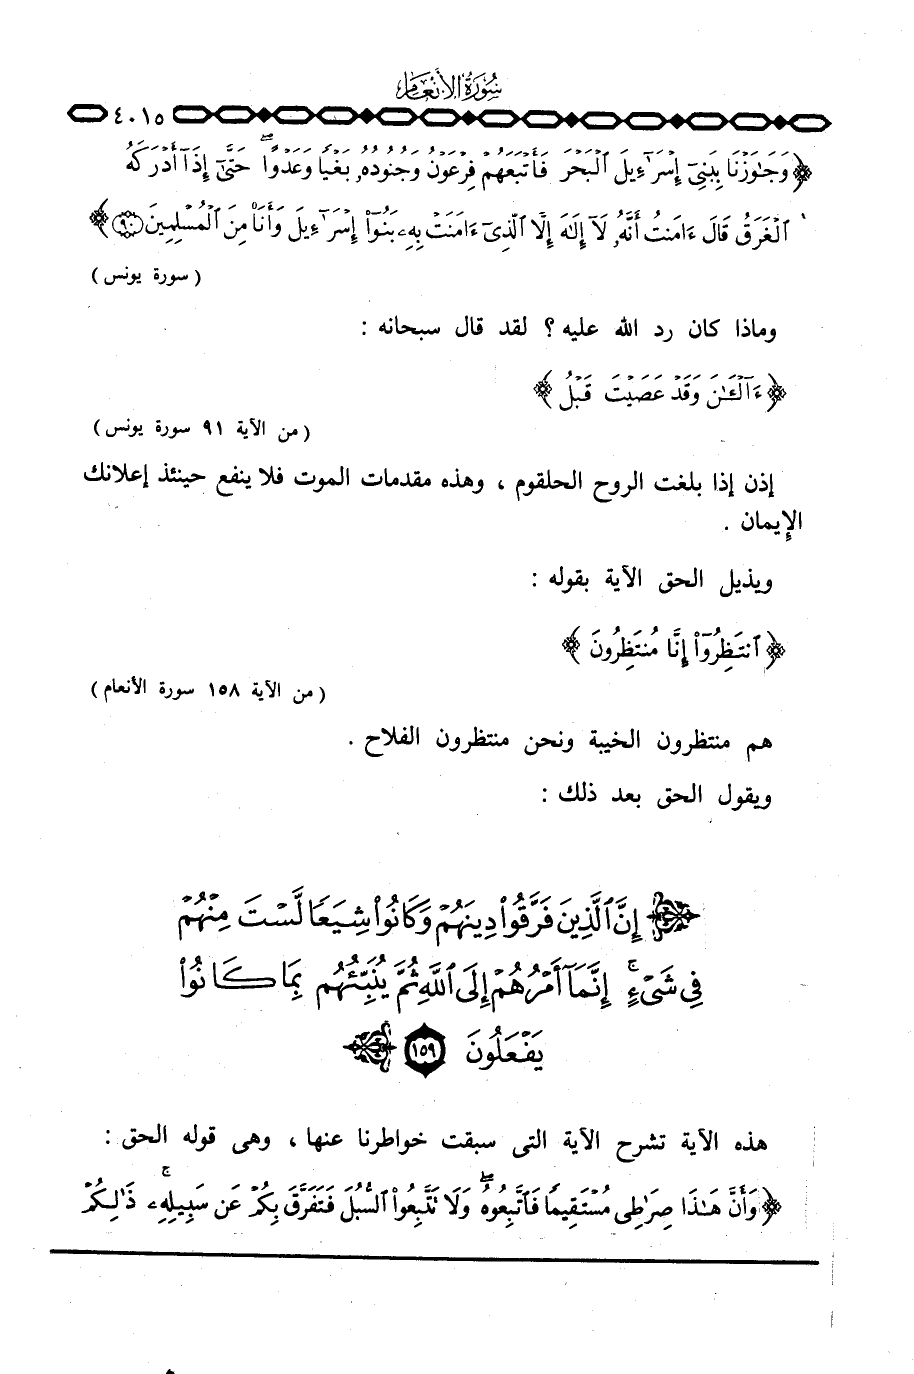 سورة الأنعام
٤٠١٥
﴿ وَجَٰوَزْنَا بِبَنِىٓ إِسْرَٰٓءِيلَ ٱلْبَحْرَ فَأَتْبَعَهُمْ فِرْعَوْنُ وَجُنُودُهُۥ بَغْيًا وَعَدْوًا ۖ حَتَّىٰٓ إِذَآ أَدْرَكَهُ
ٱلْغَرَقُ قَالَ ءَامَنتُ أَنَّهُۥ لَآ إِلَٰهَ إِلَّا ٱلَّذِىٓ ءَامَنَتْ بِهِۦ بَنُوٓا۟ إِسْرَٰٓءِيلَ وَأَنَا۠ مِنَ ٱلْمُسْلِمِينَ ٩٠ ﴾
( سورة يونس )
وماذا كان رد الله عليه ؟ لقد قال سبحانه :
﴿ ءَآلْـَٰٔنَ وَقَدْ عَصَيْتَ قَبْلُ ﴾
( من الآية ٩١ سورة يونس )
إذن إذا بلغت الروح الحلقوم ، وهذه مقدمات الموت فلا ينفع حينئذ إعلانك
الإيمان .
ويذيل الحق الآية بقوله :
﴿ ٱنتَظِرُوٓا۟ إِنَّا مُنتَظِرُونَ ﴾
( من الآية ١٥٨ سورة الأنعام )
هم منتظرون الخيبة ونحن منتظرون الفلاح .
ويقول الحق بعد ذلك :
﴿ إِنَّ ٱلَّذِينَ فَرَّقُوا۟ دِينَهُمْ وَكَانُوا۟ شِيَعًا لَّسْتَ مِنْهُمْ
فِى شَىْءٍ ۚ إِنَّمَآ أَمْرُهُمْ إِلَى ٱللَّهِ ثُمَّ يُنَبِّئُهُم بِمَا كَانُوا۟
يَفْعَلُونَ ١٥٩ ﴾
هذه الآية تشرح الآية التى سبقت خواطرنا عنها ، وهى قوله الحق :
﴿ وَأَنَّ هَٰذَا صِرَٰطِى مُسْتَقِيمًا فَٱتَّبِعُوهُ ۖ وَلَا تَتَّبِعُوا۟ ٱلسُّبُلَ فَتَفَرَّقَ بِكُمْ عَن سَبِيلِهِۦ ۚ ذَٰلِكُمْ